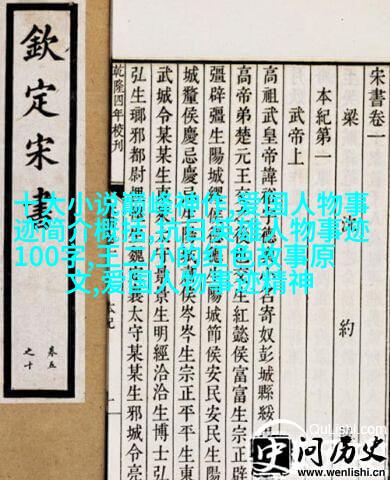 欽定宋書
卷五
之十
宋書卷一
梁 約
本紀第一
武帝上
高祖武皇帝諱裕字德 名寄奴彭城縣綏
高帝弟楚元王交 生紅懿侯富富生
彊辟彊生陽城繆 節侯安民安民生陽
城釐侯慶忌慶忌生 侯岑岑生宗正平平生東
武城令某某生東 景景生明經洽洽生博士弘
弘生瑯邪都尉悝 魏定襄太守某某生邪城令亮
乾隆四年校刊
本紀
一
十大小说巅峰神作,爱国人物事
迹简介概括,抗日英雄人物事迹
100字,王二小的红色故事原
文,爱国人物事迹精神
QuLishi.com
问历史
www.wenlishi.cn